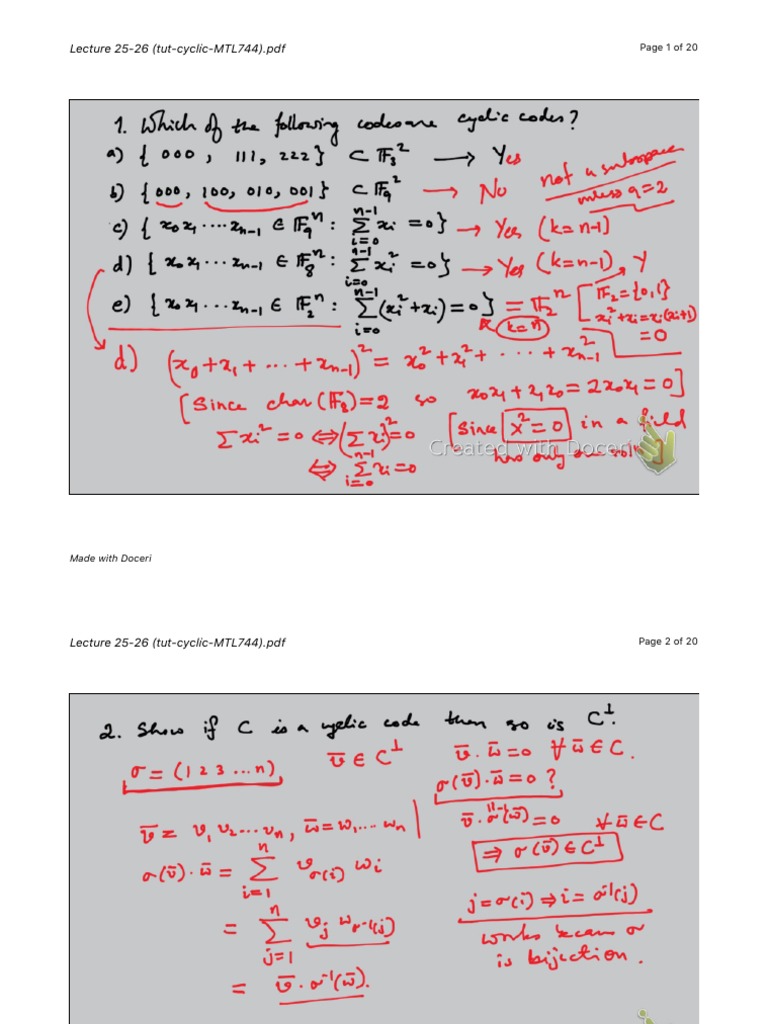 Lecture 25-26 (tut-cyclic-MTL744).pdf Page 1 of 20
1. Which of the following codes are cyclic codes?
a) {000, 111, 222} ⊂ 𝔽₃² → Yes
not a subspace
unless q=2
b) {000, 100, 010, 001} ⊂ 𝔽q² → No
c) {x₀x₁....xₙ₋₁ ∈ 𝔽qⁿ : Σᵢ₌₀ⁿ⁻¹ xᵢ = 0} → Yes (k=n-1)
d) {x₀x₁...xₙ₋₁ ∈ 𝔽₈ⁿ : Σᵢ₌₀ⁿ⁻¹ xᵢ² = 0} → Yes (k=n-1) Y
e) {x₀x₁...xₙ₋₁ ∈ 𝔽₂ⁿ : Σᵢ₌₀ⁿ⁻¹ (xᵢ²+xᵢ) = 0} = 𝔽₂ⁿ [𝔽₂={0,1}
k=n xᵢ²+xᵢ=xᵢ(xᵢ+1)
=0
d) (x₀+x₁+...+xₙ₋₁)² = x₀²+x₁²+...+xₙ₋₁²
[Since char(𝔽₈)=2 so x₀x₁+x₁x₀=2x₀x₁=0]
Σxᵢ²=0 ⇔ (Σxᵢ)²=0 [Since x²=0 in a field
has only one
⇔ Σᵢ₌₀ⁿ⁻¹ xᵢ=0
Created with Doceri
Made with Doceri
Lecture 25-26 (tut-cyclic-MTL744).pdf Page 2 of 20
2. Show if C is a cyclic code then so is C^⊥.
σ = (1 2 3 ... n) v̄ ∈ C^⊥ v̄·w̄=0 ∀ w̄ ∈ C.
σ(v̄)·w̄=0 ?
v̄ = v₁v₂...vₙ, w̄=w₁...wₙ v̄·σ⁻¹(w̄)=0 ∀ w̄ ∈ C
σ(v̄)·w̄ = Σᵢ₌₁ⁿ v_σ(i) wᵢ ⇒ σ(v̄) ∈ C^⊥
= Σⱼ₌₁ⁿ vⱼ w_σ⁻¹(j) j=σ(i) ⇒ i=σ⁻¹(j)
works σ
is bijection.
= v̄·σ⁻¹(w̄).